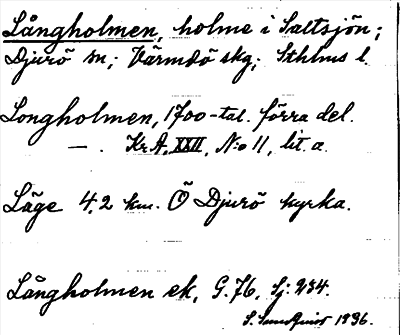 Långholmen, holme i Saltsjön;
Djurö sn; Värmdö skg; Sthlms l.
Longholmen, 1700-tal. förra del.
— . Kr.A, XXII, N:o 11, lit. a.
Läge 4,2 km. Ö Djurö kyrka.
Långholmen ek, G.76, Sj: 234.
S. Sundqvist 1936.